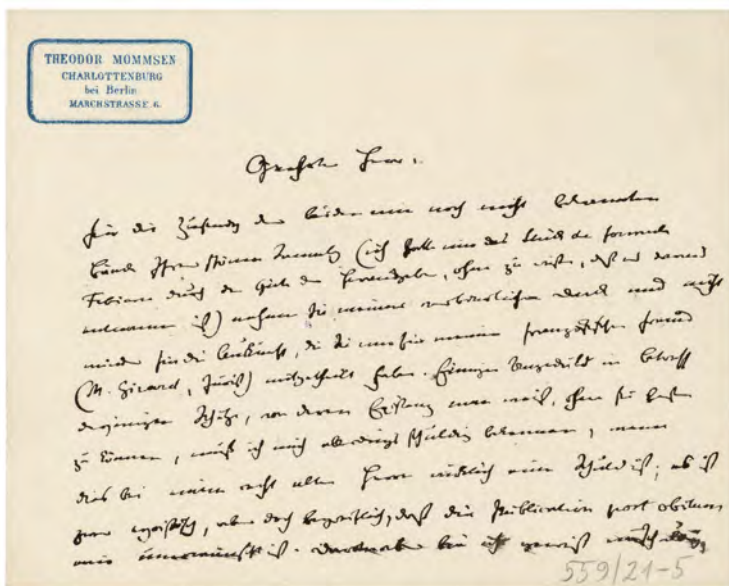 THEODOR MOMMSEN
CHARLOTTENBURG
bei Berlin
MARCHSTRASSE 6.
Geehrter Herr.
für die Zusendung der beiden mir noch nicht bekannten
Bände Ihrer schönen (ich hatte nur das Stück de formula
Fabiana durch die Güte des Herausgebers, ohne zu wissen, daß es daraus
entnommen ist) nehmen Sie meinen verbindlichen Dank und nicht
minder für die Auskunft, die Sie mir für meinen französischen Freund
(M. Girard, Jurist) mitgetheilt haben. Einiger Ungeduld in Betreff
derjenigen Schätze, von deren Existenz man weiß, ohne sie
zu können, muß ich mich allerdings schuldig bekennen, wenn
dies bei einem recht alten Herrn wirklich eine Schuld ist; es ist
zwar egoistisch, aber doch begreiflich, daß die Publication post obitum
mir unerwünscht ist.
559/21-5